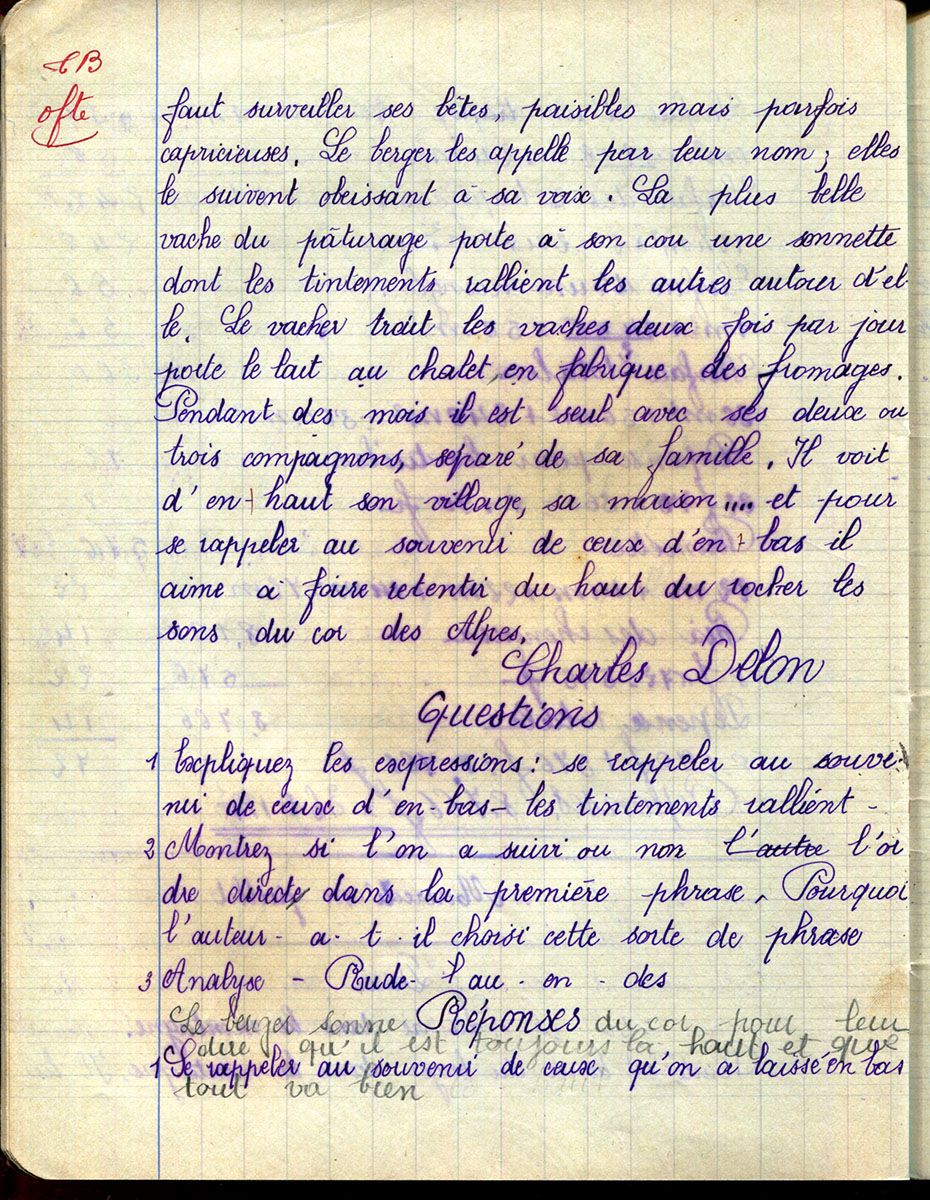 TB
faut surveiller ses bêtes, paisibles mais parfois
capricieuses. Le berger les appelle par leur nom; elles
le suivent obeissant à sa voix. La plus belle
vache du pâturage porte à son cou une sonnette
dont les tintements rallient les autres autour d'el-
le. Le vacher trait les vaches deux fois par jour
porte le lait au chalet, en fabrique des fromages.
Pendant des mois il est seul avec ses deux ou
trois compagnons, separé de sa famille. Il voit
d'en-haut son village, sa maison.... et pour
se rappeler au souvenir de ceux d'en-bas il
aime à faire retentir du haut du rocher les
sons du cor des Alpes.
Charles Delon
Questions
1 Expliquez les expressions: se rappeler au souve-
nir de ceux d'en-bas - les tintements rallient -
2 Montrez si l'on a suivi ou non l'autre l'or
dre directe dans la première phrase. Pourquoi
l'auteur - a - t - il choisi cette sorte de phrase
3 Analyse - Rude - l'au - en - des
Réponses
Le berger sonne du cor pour leur
dire qu'il est toujours la haut et que
1 Se rappeler au souvenir de ceux qu'on a laissé en bas
tout va bien